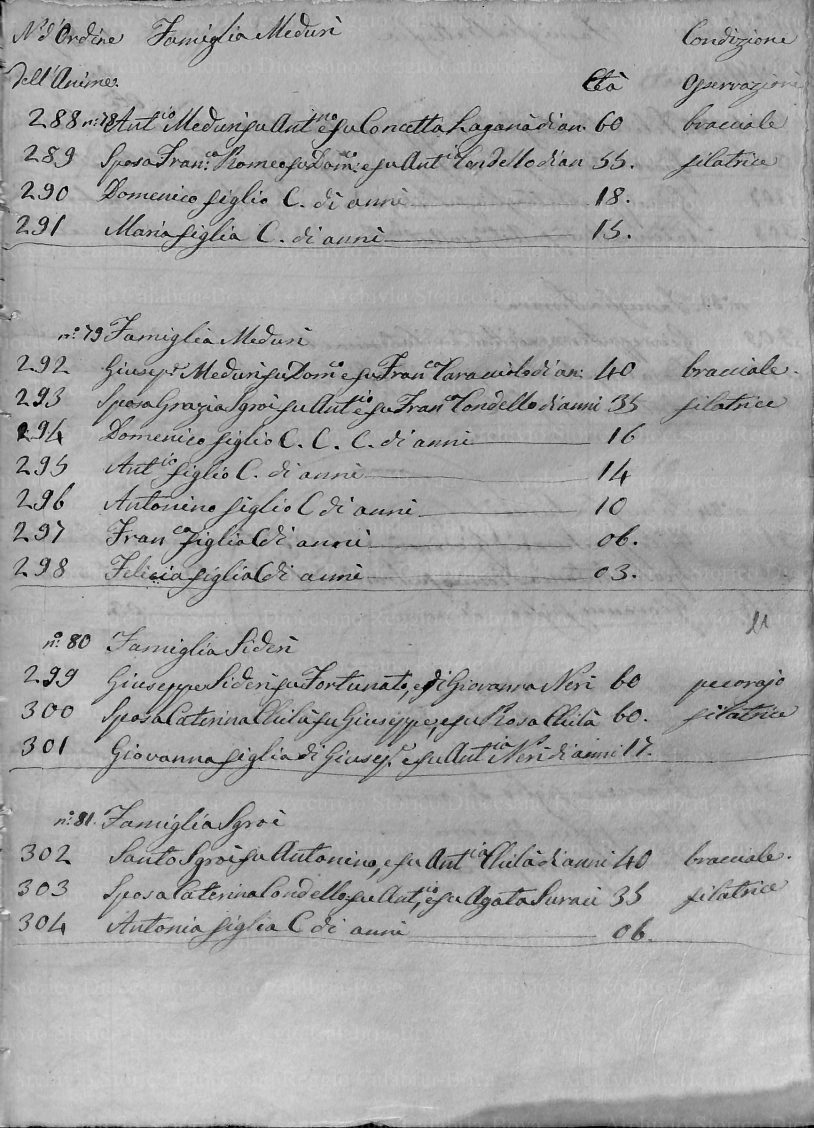 N. d'Ordine Famiglia Meduri Condizione
dell'Anime Età Osservazioni
288 n.° 78 Ant.io Meduri fu Ant.no e fu Concetta Laganà di an. 60 bracciale
289 Sposa Fran.ca Romeo fu Dom.co e fu Ant.a Condello di an 55. filatrice
290 Domenico figlio C. di anni 18.
291 Maria figlia C. di anni 15.
n.° 79 Famiglia Meduri
292 Giusep.e Meduri fu Dom.co e fu Fran.ca Caracciolo di an: 40 bracciale.
293 Sposa Grazia Sgroi fu Ant.io e fu Fran.ca Condello di anni 35 filatrice
294 Domenico figlio C. C. C. di anni 16
295 Ant.io figlio C. di anni 14
296 Antonino figlio C di anni 10
297 Fran.ca figlia C di anni 06.
298 Felicia figlia C di anni 03.
n.° 80 Famiglia Sideri
299 Giuseppe Sideri fu Fortunato, e di Giovanna Neri 60 pecorajo
300 Sposa Caterina Chilà fu Giuseppe, e fu Rosa Chilà 60. filatrice
301 Giovanna figlia di Giusep.e e fu Ant.nia Neri di anni 17.
n.° 81. Famiglia Sgroi
302 Santo Sgroi fu Antonino, e fu Ant.cia Chilà di anni 40 bracciale.
303 Sposa Caterina Condello fu Ant.io, e fu Agata Suraci 35 filatrice
304 Antonia figlia C di anni 06.